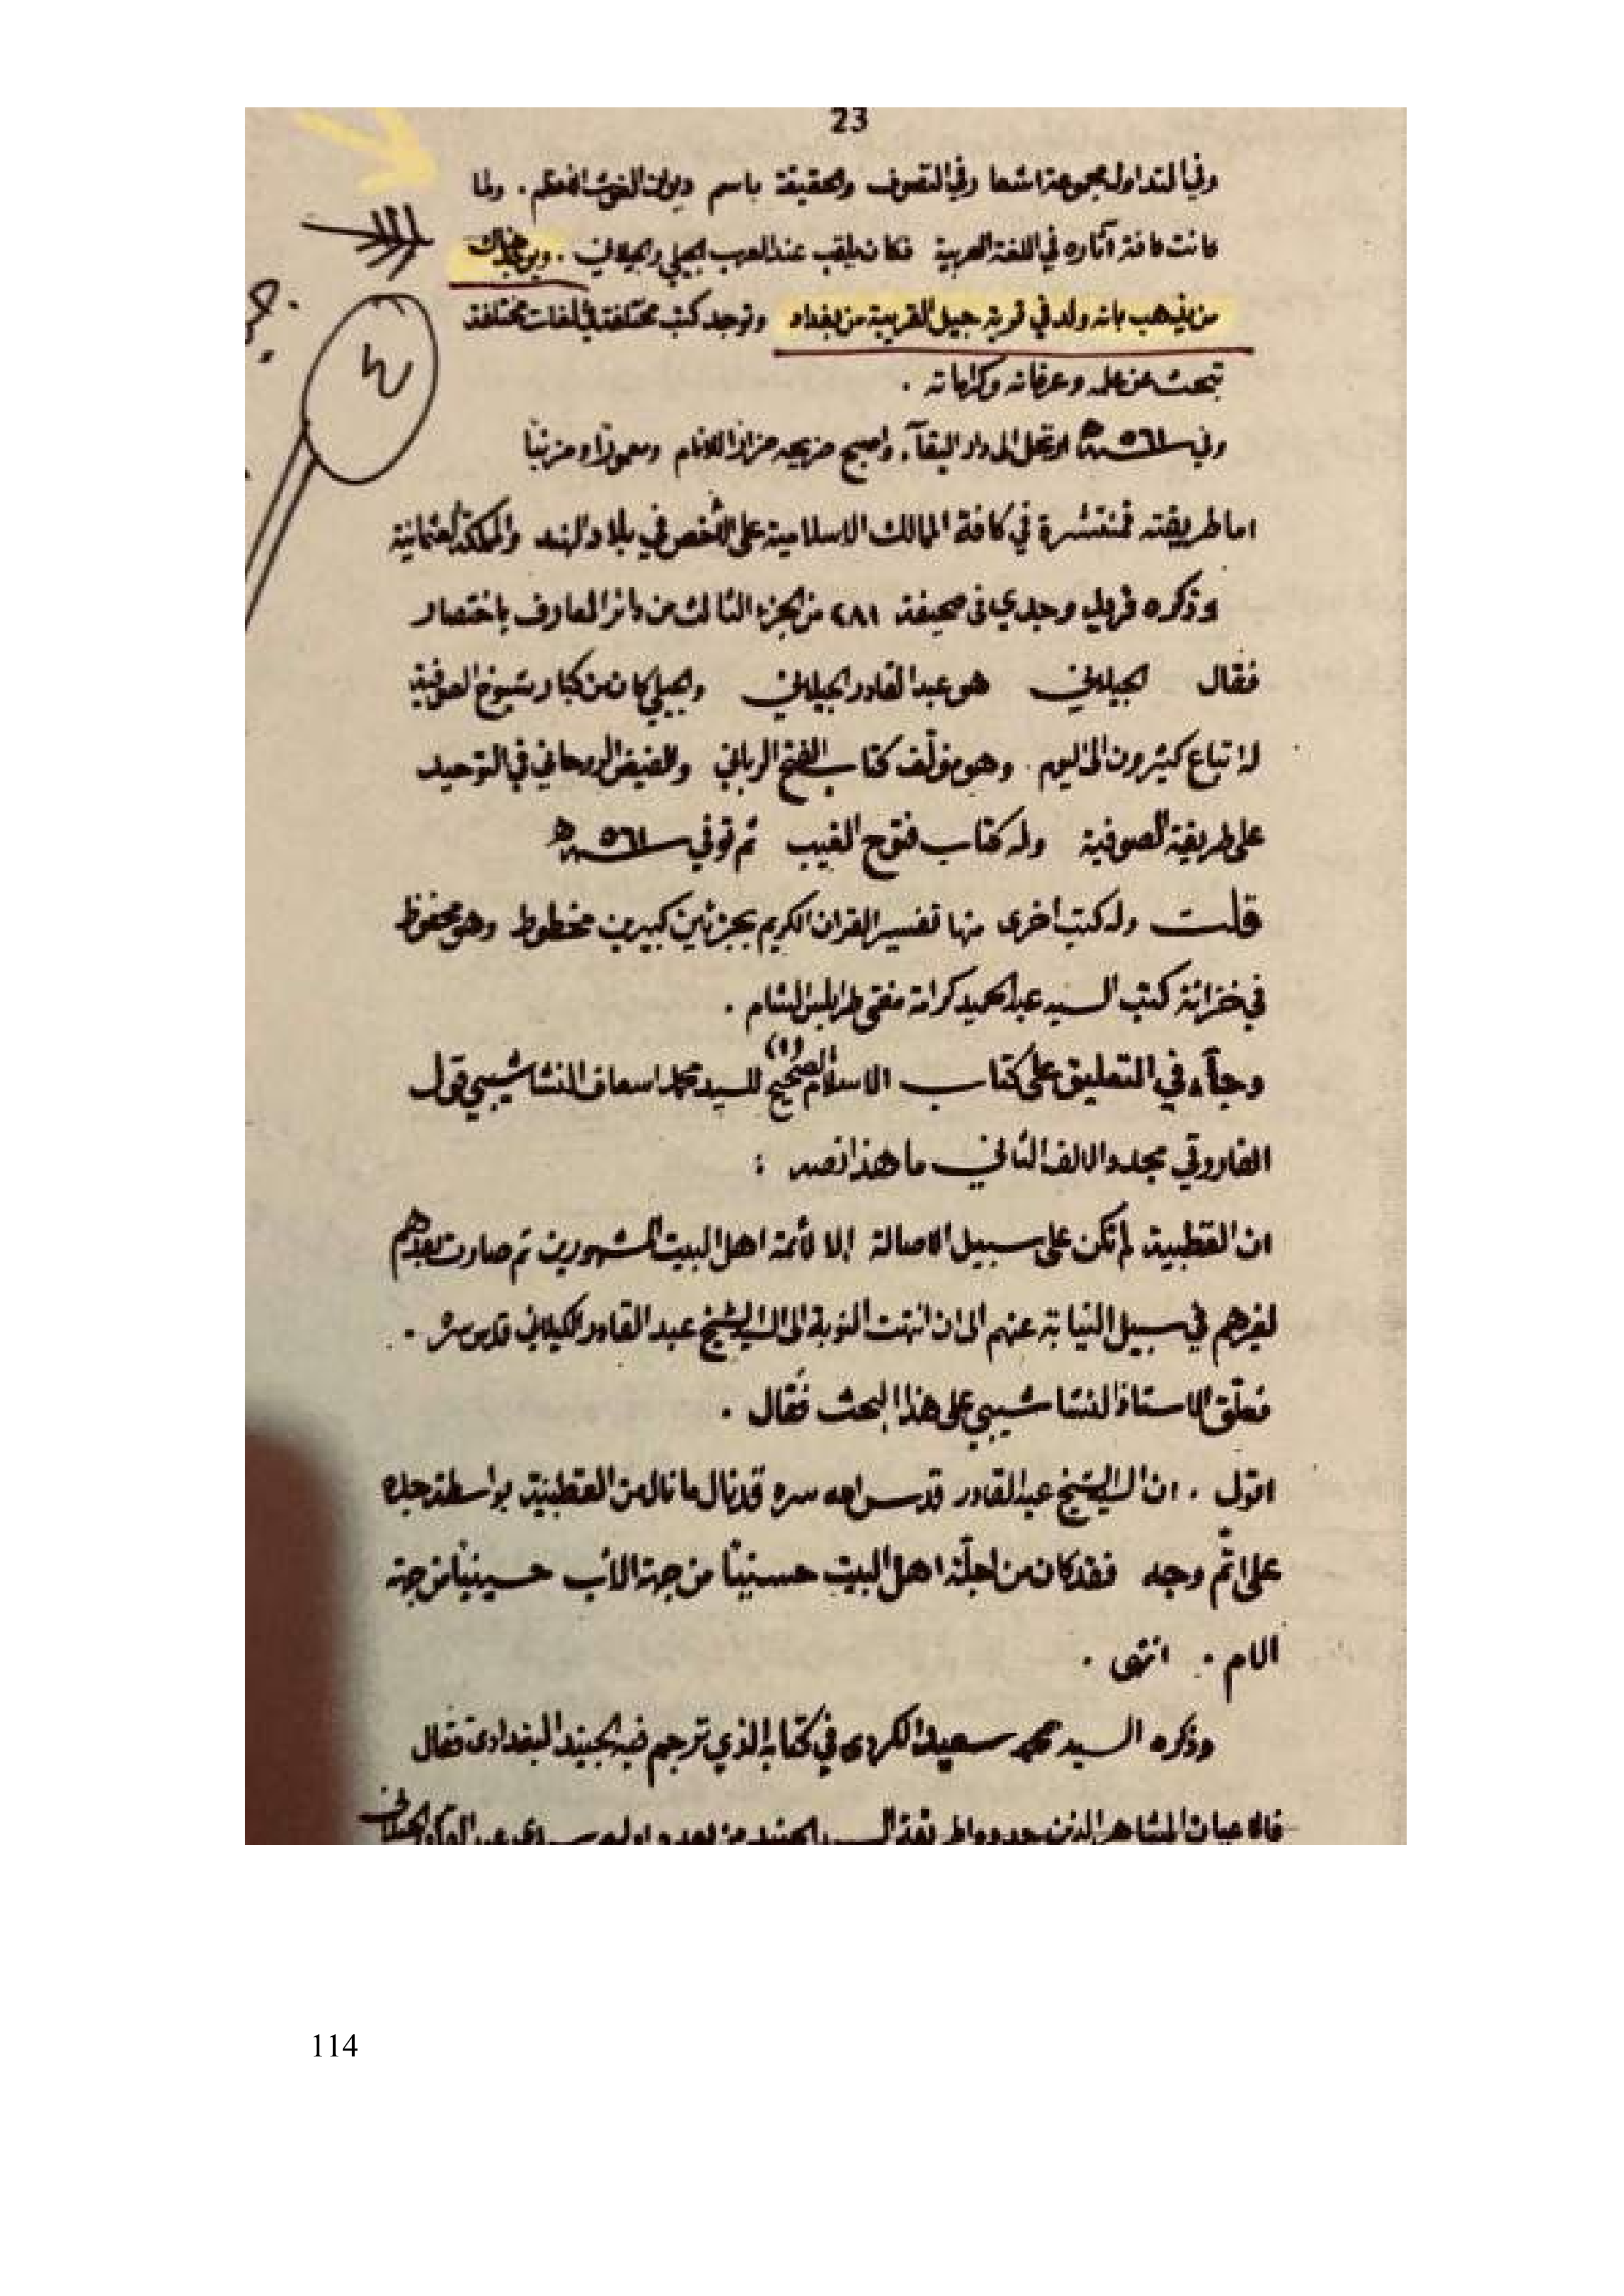 23
وفي التداول مجموعة اشعار في التصوف والحقيقة باسم ديوان الغوث الاعظم . ولما
كانت كافة آثاره في اللغة العربية فكان يلقب عند العرب الجيلي والجيلاني . ويوجد هناك
من يذهب بانه ولد في قرية جيل القريبة من بغداد وتوجد كتب مختلفة في لغات مختلفة
تبحث عن علمه وعرفانه وكراماته .
وفي سنة ٥٦١ هـ ارتحل الى دار البقآء واصبح ضريحه مزارًا للانام ومعمورًا ومزينًا
اما طريقته فمنتشرة في كافة الممالك الاسلامية على الأخص في بلاد الهند والمملكة العثمانية
وذكره فريد وجدي في صحيفة ٢٨١ من الجزء الثالث من دائر المعارف باختصار
فقال الجيلاني هو عبد القادر الجيلاني والجيلي كان من كبار شيوخ الصوفية
له اتباع كثيرون الى اليوم . وهو مؤلف كتاب الفتح الرباني والفيض الروحاني في التوحيد
على طريقة الصوفية وله كتاب فتوح الغيب ثم توفي سنة ٥٦١ هـ
قلت وله كتب أخرى منها تفسير القران الكريم بجزئين كبيرين مخطوط وهو محفوظ
في خزانة كتب السيد عبد الحميد كرامة مفتي طرابلس الشام .
وجآء في التعليق على كتاب الاسلام الصحيح (١) للسيد محمد اسعاف النشاشيبي قول
الفاروقي مجدد الالف الثاني ما هذا نصه :
ان القطبية لم تكن على سبيل الاصالة إلا لأئمة اهل البيت المشهورين ثم صارت بعدهم
لغيرهم في سبيل النيابة عنهم الى ان انتهت النوبة الى السيد الشيخ عبد القادر الكيلاني قدس سره .
فعلّق الاستاذ النشاشيبي على هذا البحث فقال .
اقول . ان السيد الشيخ عبد القادر قدس الله سره قد نال ما نال من القطبية بواسطة جده
على اتم وجه فقد كان من اجلّة اهل البيت حسنيًا من جهة الأب حسينيًا من جهة
الام . انتهى .
وذكره السيد محمد سعيد الكردي في كتابه الذي ترجم فيه الجنيد البغدادي فقال
114